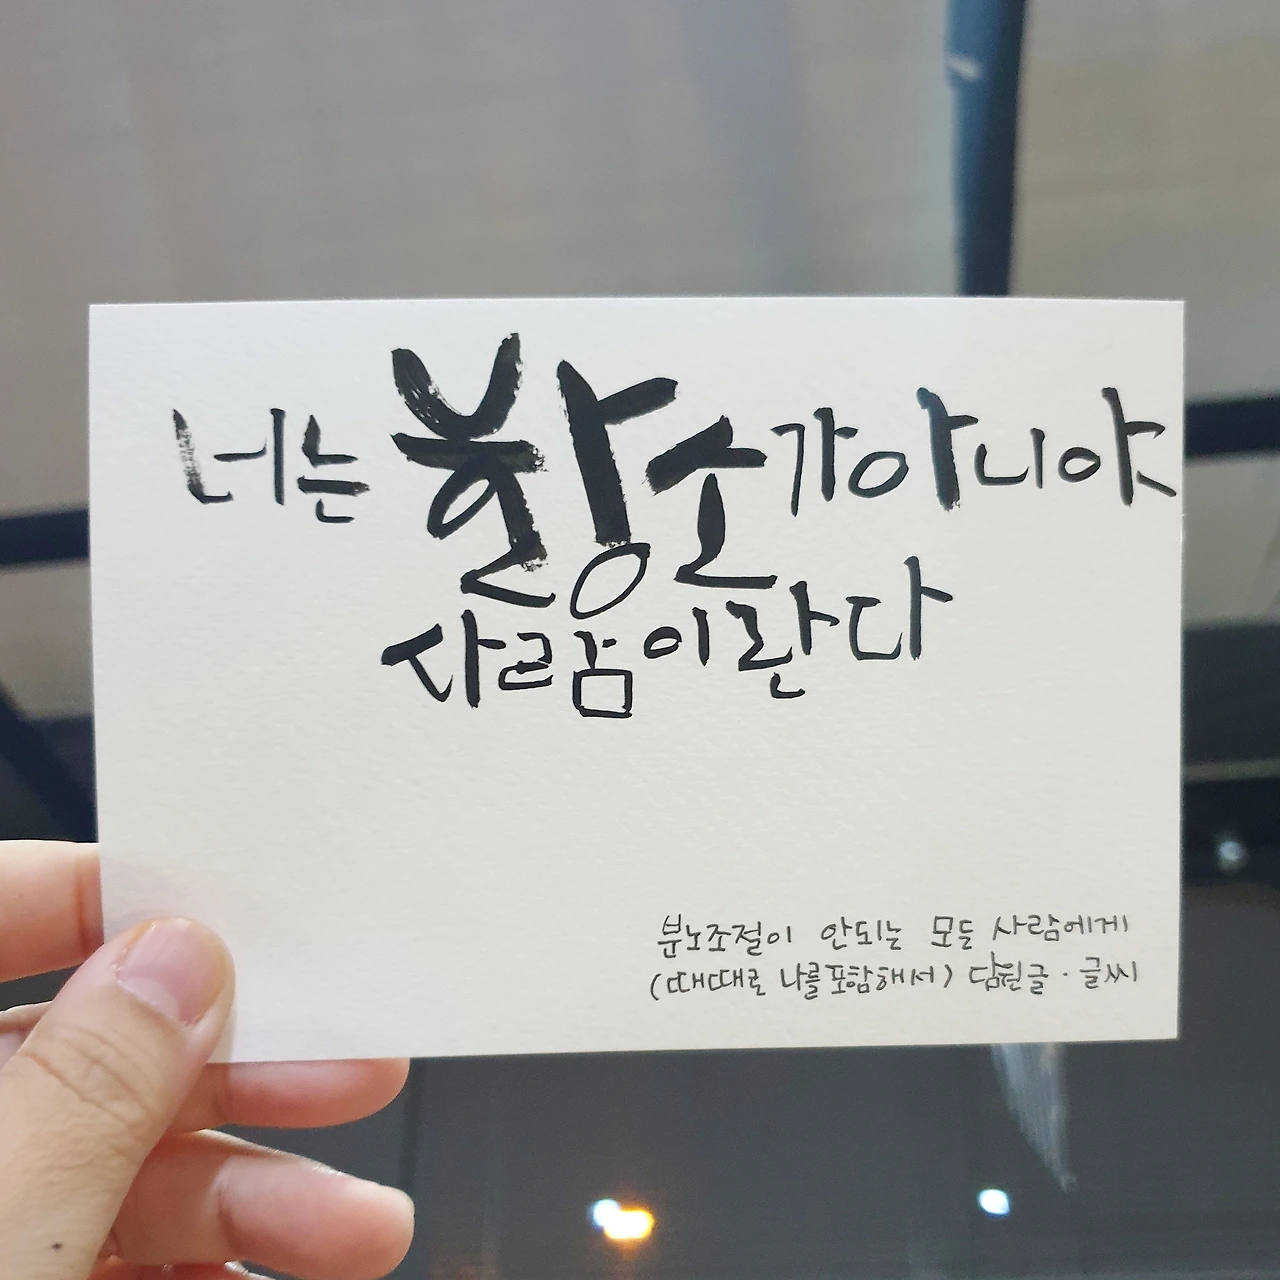 너는 황소가 아니야
사람이란다
분노조절이 안되는 모든 사람에게
(때때로 나를 포함해서) 담원글·글씨